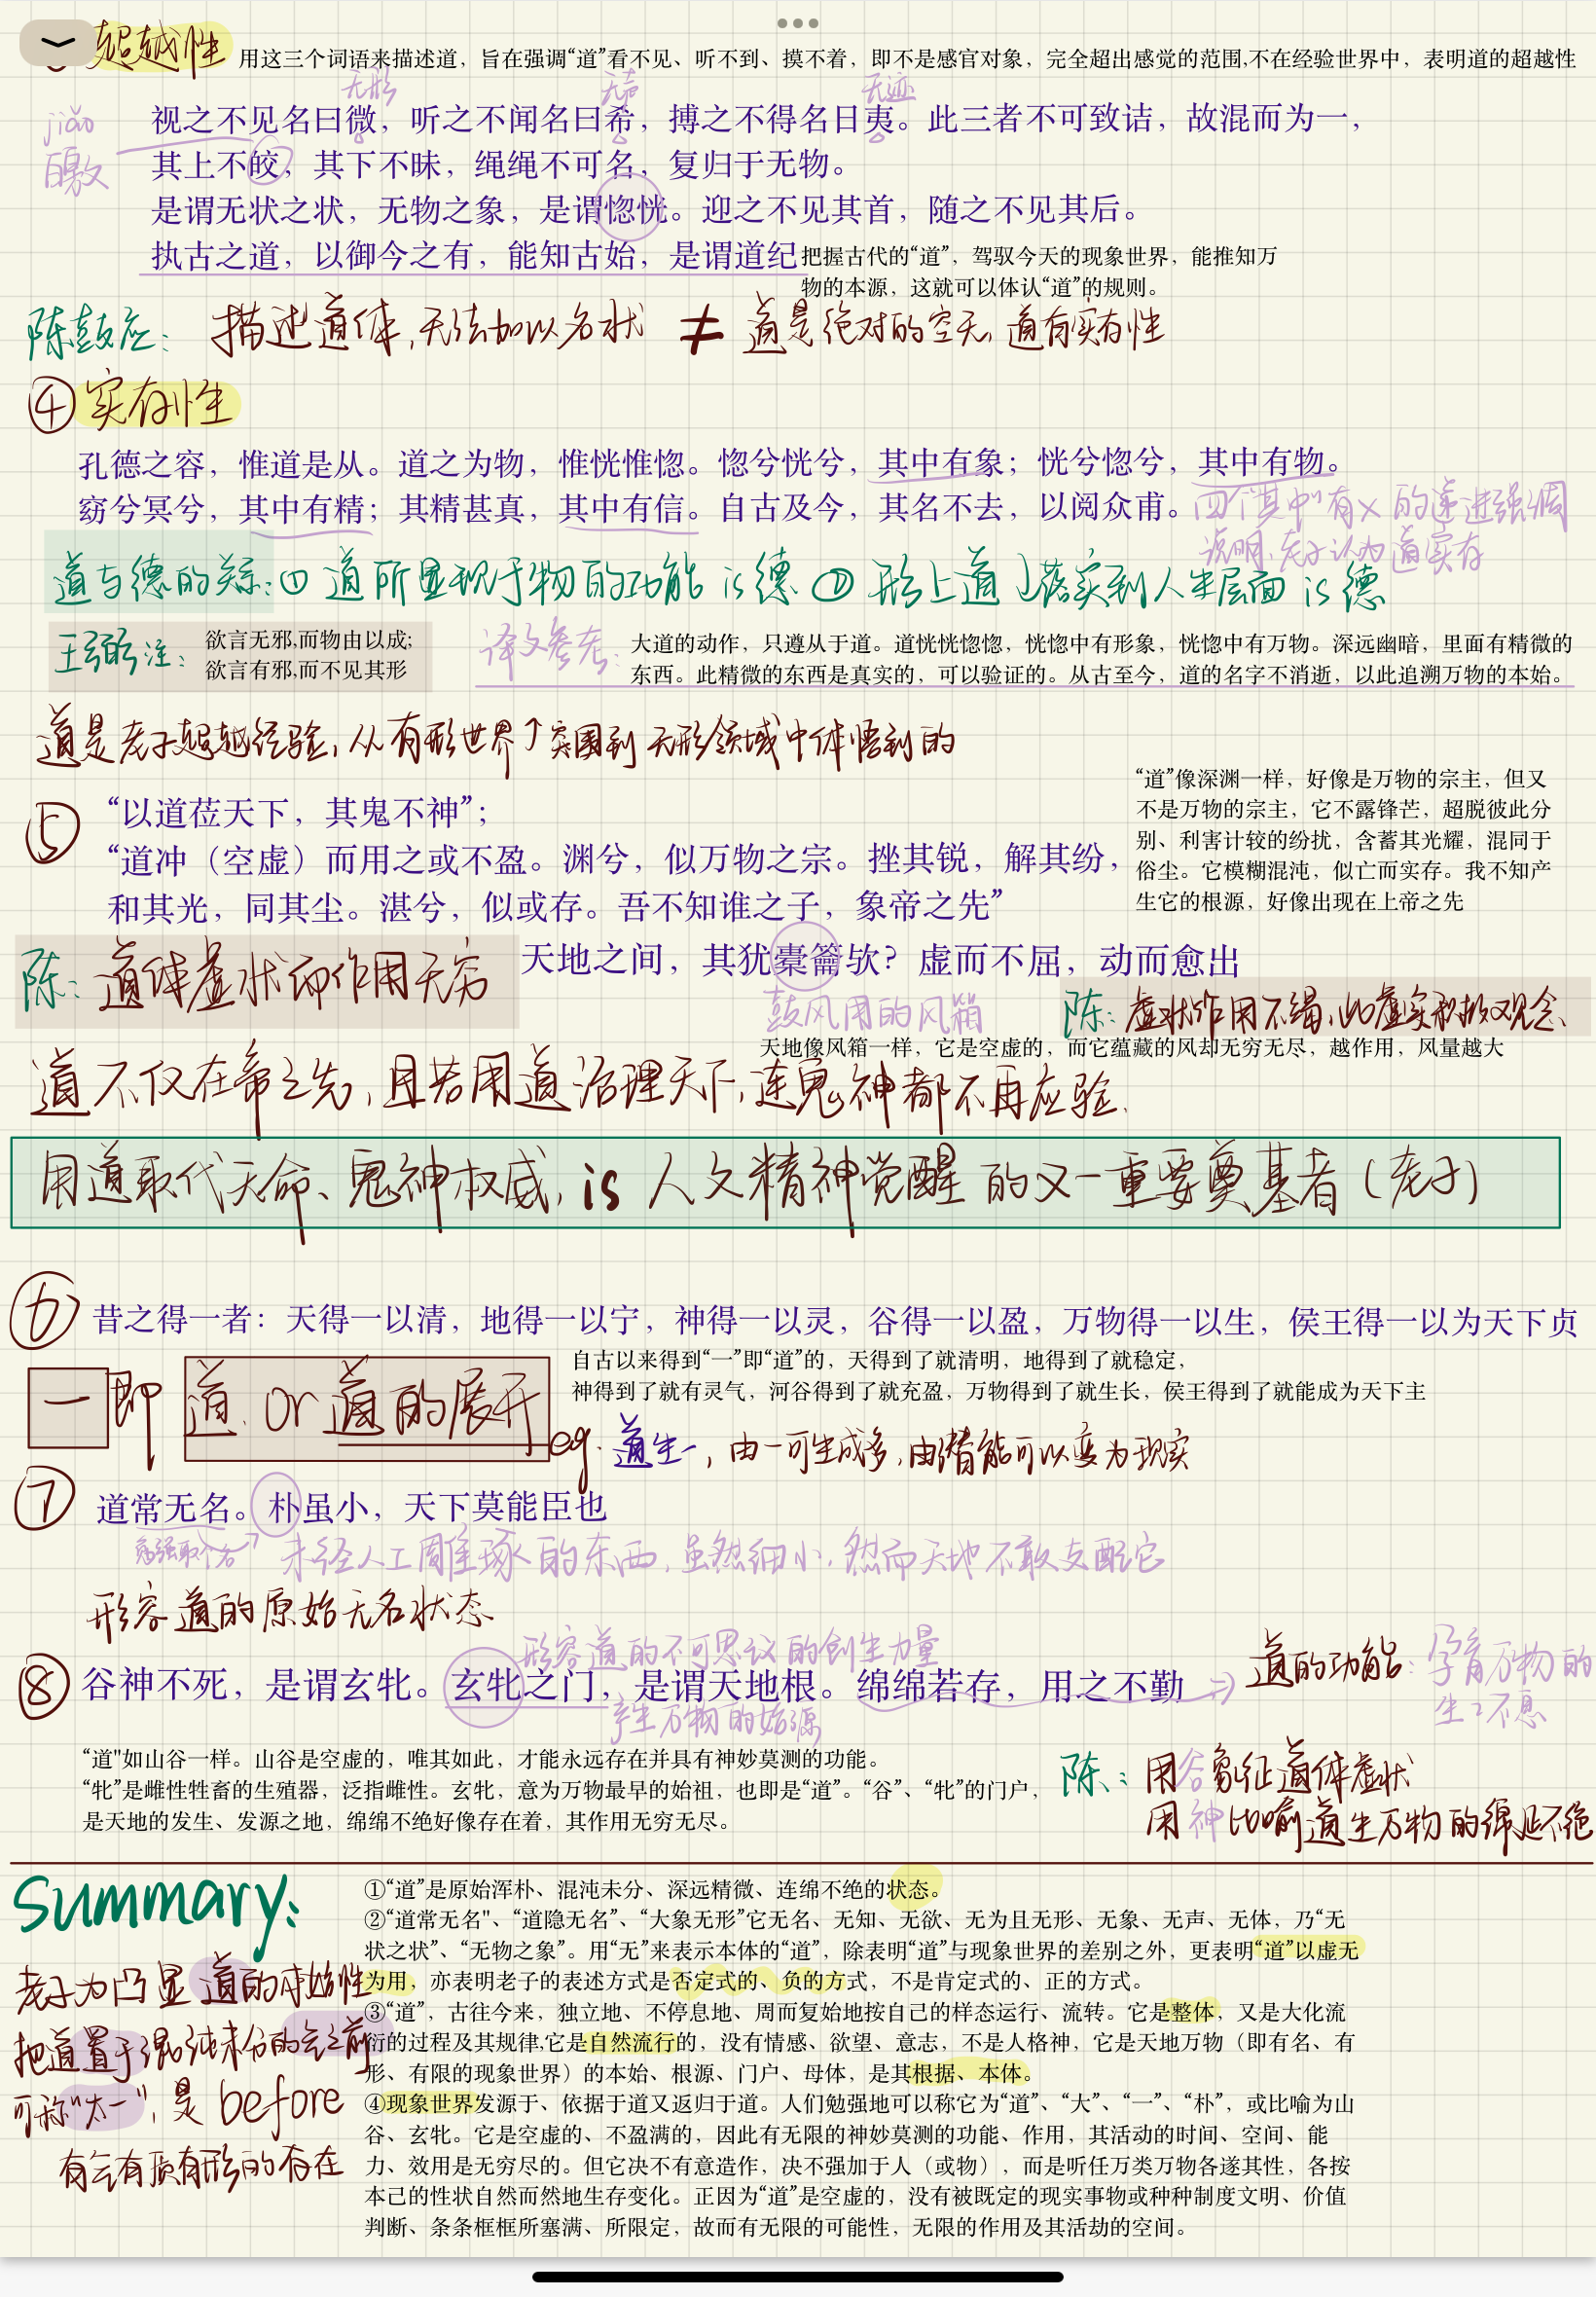 超越性
用这三个词语来描述道，旨在强调“道”看不见、听不到、摸不着，即不是感官对象，完全超出感觉的范围,不在经验世界中，表明道的超越性
无形 无声 无迹
视之不见名曰微，听之不闻名曰希，搏之不得名日夷。此三者不可致诘，故混而为一，
jiǎo
皦
其上不皎，其下不昧，绳绳不可名，复归于无物。
是谓无状之状，无物之象，是谓惚恍。迎之不见其首，随之不见其后。
执古之道，以御今之有，能知古始，是谓道纪
把握古代的“道”，驾驭今天的现象世界，能推知万
物的本源，这就可以体认“道”的规则。
陈鼓应：描述道体,无法加以名状 ≠ 道是绝对的空无,道有实存性
④实存性
孔德之容，惟道是从。道之为物，惟恍惟惚。惚兮恍兮，其中有象；恍兮惚兮，其中有物。
窈兮冥兮，其中有精；其精甚真，其中有信。自古及今，其名不去，以阅众甫。
四个“其中”有X的递进强调
说明,老子认为道实存
道与德的关系:① 道所显现于物的功能 is 德 ② 形上道↓落实到人生层面 is 德
王弼注：
欲言无邪,而物由以成;
欲言有邪,而不见其形
译文参考:
大道的动作，只遵从于道。道恍恍惚惚，恍惚中有形象，恍惚中有万物。深远幽暗，里面有精微的
东西。此精微的东西是真实的，可以验证的。从古至今，道的名字不消逝，以此追溯万物的本始。
道是老子超越经验,从有形世界↑突围到无形领域中体悟到的
⑤
“以道莅天下，其鬼不神”；
“道冲（空虚）而用之或不盈。渊兮，似万物之宗。挫其锐，解其纷，
和其光，同其尘。湛兮，似或存。吾不知谁之子，象帝之先”
“道”像深渊一样，好像是万物的宗主，但又
不是万物的宗主，它不露锋芒，超脱彼此分
别、利害计较的纷扰，含蓄其光耀，混同于
俗尘。它模糊混沌，似亡而实存。我不知产
生它的根源，好像出现在上帝之先
陈：道体虚状而作用无穷
天地之间，其犹橐籥欤？虚而不屈，动而愈出
鼓风用的风箱
陈：虚状作用不竭,此虚实积极义观念
天地像风箱一样，它是空虚的，而它蕴藏的风却无穷无尽，越作用，风量越大
道不仅在帝之先,且若用道治理天下,连鬼神都不再应验.
用道取代天命、鬼神权威, is 人文精神觉醒的又一重要奠基者(老子)
⑥
昔之得一者：天得一以清，地得一以宁，神得一以灵，谷得一以盈，万物得一以生，侯王得一以为天下贞
自古以来得到“一”即“道”的，天得到了就清明，地得到了就稳定，
神得到了就有灵气，河谷得到了就充盈，万物得到了就生长，侯王得到了就能成为天下主
一即 道, or 道的展开
eg. 道生一, 由一可生成多,由潜能可以变为现实
⑦
道常无名。朴虽小，天下莫能臣也
勉强取个名 未经人工雕琢的东西,虽然细小,然而天地不敢支配它
形容道的原始无名状态
形容道的不可思议的创生力量
⑧谷神不死，是谓玄牝。玄牝之门，是谓天地根。绵绵若存，用之不勤
产生万物的始源
⇒ 道的功能: 孕育万物的
生生不息
“道"如山谷一样。山谷是空虚的，唯其如此，才能永远存在并具有神妙莫测的功能。
“牝”是雌性牲畜的生殖器，泛指雌性。玄牝，意为万物最早的始祖，也即是“道”。“谷”、“牝”的门户，
是天地的发生、发源之地，绵绵不绝好像存在着，其作用无穷无尽。
陈：用谷象征道体虚状
用神比喻道生万物的绵延不绝
Summary:
老子为凸显道的本始性
把道置于混沌未分的气之前
可称“太一”,是before
有气有质有形的存在
①“道”是原始浑朴、混沌未分、深远精微、连绵不绝的状态。
②“道常无名"、“道隐无名”、“大象无形”它无名、无知、无欲、无为且无形、无象、无声、无体，乃“无
状之状”、“无物之象”。用“无”来表示本体的“道”，除表明“道”与现象世界的差别之外，更表明“道”以虚无
为用，亦表明老子的表述方式是否定式的、负的方式，不是肯定式的、正的方式。
③“道”，古往今来，独立地、不停息地、周而复始地按自己的样态运行、流转。它是整体，又是大化流
衍的过程及其规律,它是自然流行的，没有情感、欲望、意志，不是人格神，它是天地万物（即有名、有
形、有限的现象世界）的本始、根源、门户、母体，是其根据、本体。
④现象世界发源于、依据于道又返归于道。人们勉强地可以称它为“道”、“大”、“一”、“朴”，或比喻为山
谷、玄牝。它是空虚的、不盈满的，因此有无限的神妙莫测的功能、作用，其活动的时间、空间、能
力、效用是无穷尽的。但它决不有意造作，决不强加于人（或物），而是听任万类万物各遂其性，各按
本己的性状自然而然地生存变化。正因为“道”是空虚的，没有被既定的现实事物或种种制度文明、价值
判断、条条框框所塞满、所限定，故而有无限的可能性，无限的作用及其活劫的空间。